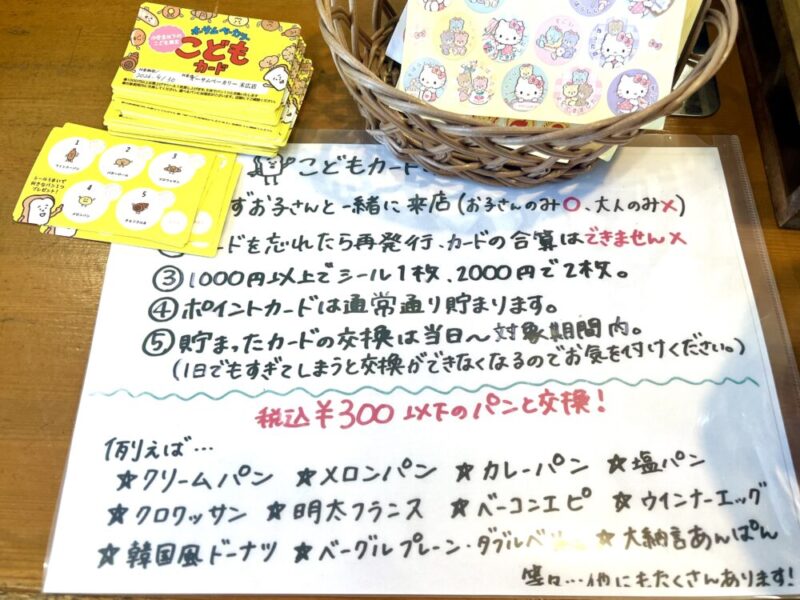 ホリデムベーカリー
小学生以下のこども限定
こどもカード
2024.9/30
末広店
1
2
3
4
5
クロワッサン
メロンパン
シール5つで
好きなパン1つ
プレゼント!
こどもカード
ずお子さんと一緒に来店(お子さんのみ〇、大人のみ×)
ードを忘れたら再発行、カードの合算はできません×
③1000円以上でシール1枚、2000円で2枚。
④ポイントカードは通常通り貯まります。
⑤貯まったカードの交換は当日～対象期間内。
(1日でもすぎてしまうと交換ができなくなるのでお気を付けください。)
税込¥300以下のパンと交換!
例えば…
☆クリームパン ☆メロンパン ☆カレーパン ☆塩パン
☆クロワッサン ☆明太フランス ☆ベーコンエピ ☆ウインナーエッグ
☆韓国風ドーナツ ☆ベーグルプレーン・ダブルベ ☆大納言あんぱん
等々…他にもたくさんあります!